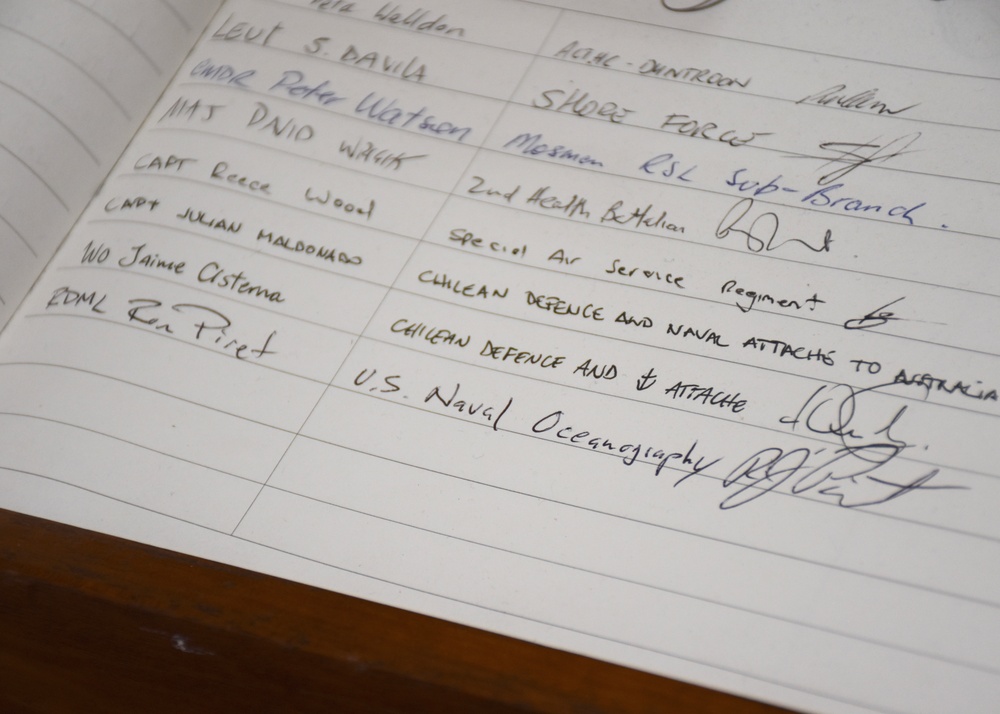 Welldon ACIHC - DUNTROON
LEUT S. DAVILA SHORE FORCE
CMDR Peter Watson Mosman RSL Sub-Branch.
MAJ 2nd Health Battalion
CAPT Reece Wood Special Air Service Regiment
CAPT JULIAN MALDONADO CHILEAN DEFENCE AND NAVAL ATTACHÉ TO AUSTRALIA
WO Jaime Cisterna CHILEAN DEFENCE AND ATTACHE
RDML Ron Piret U.S. Naval Oceanography